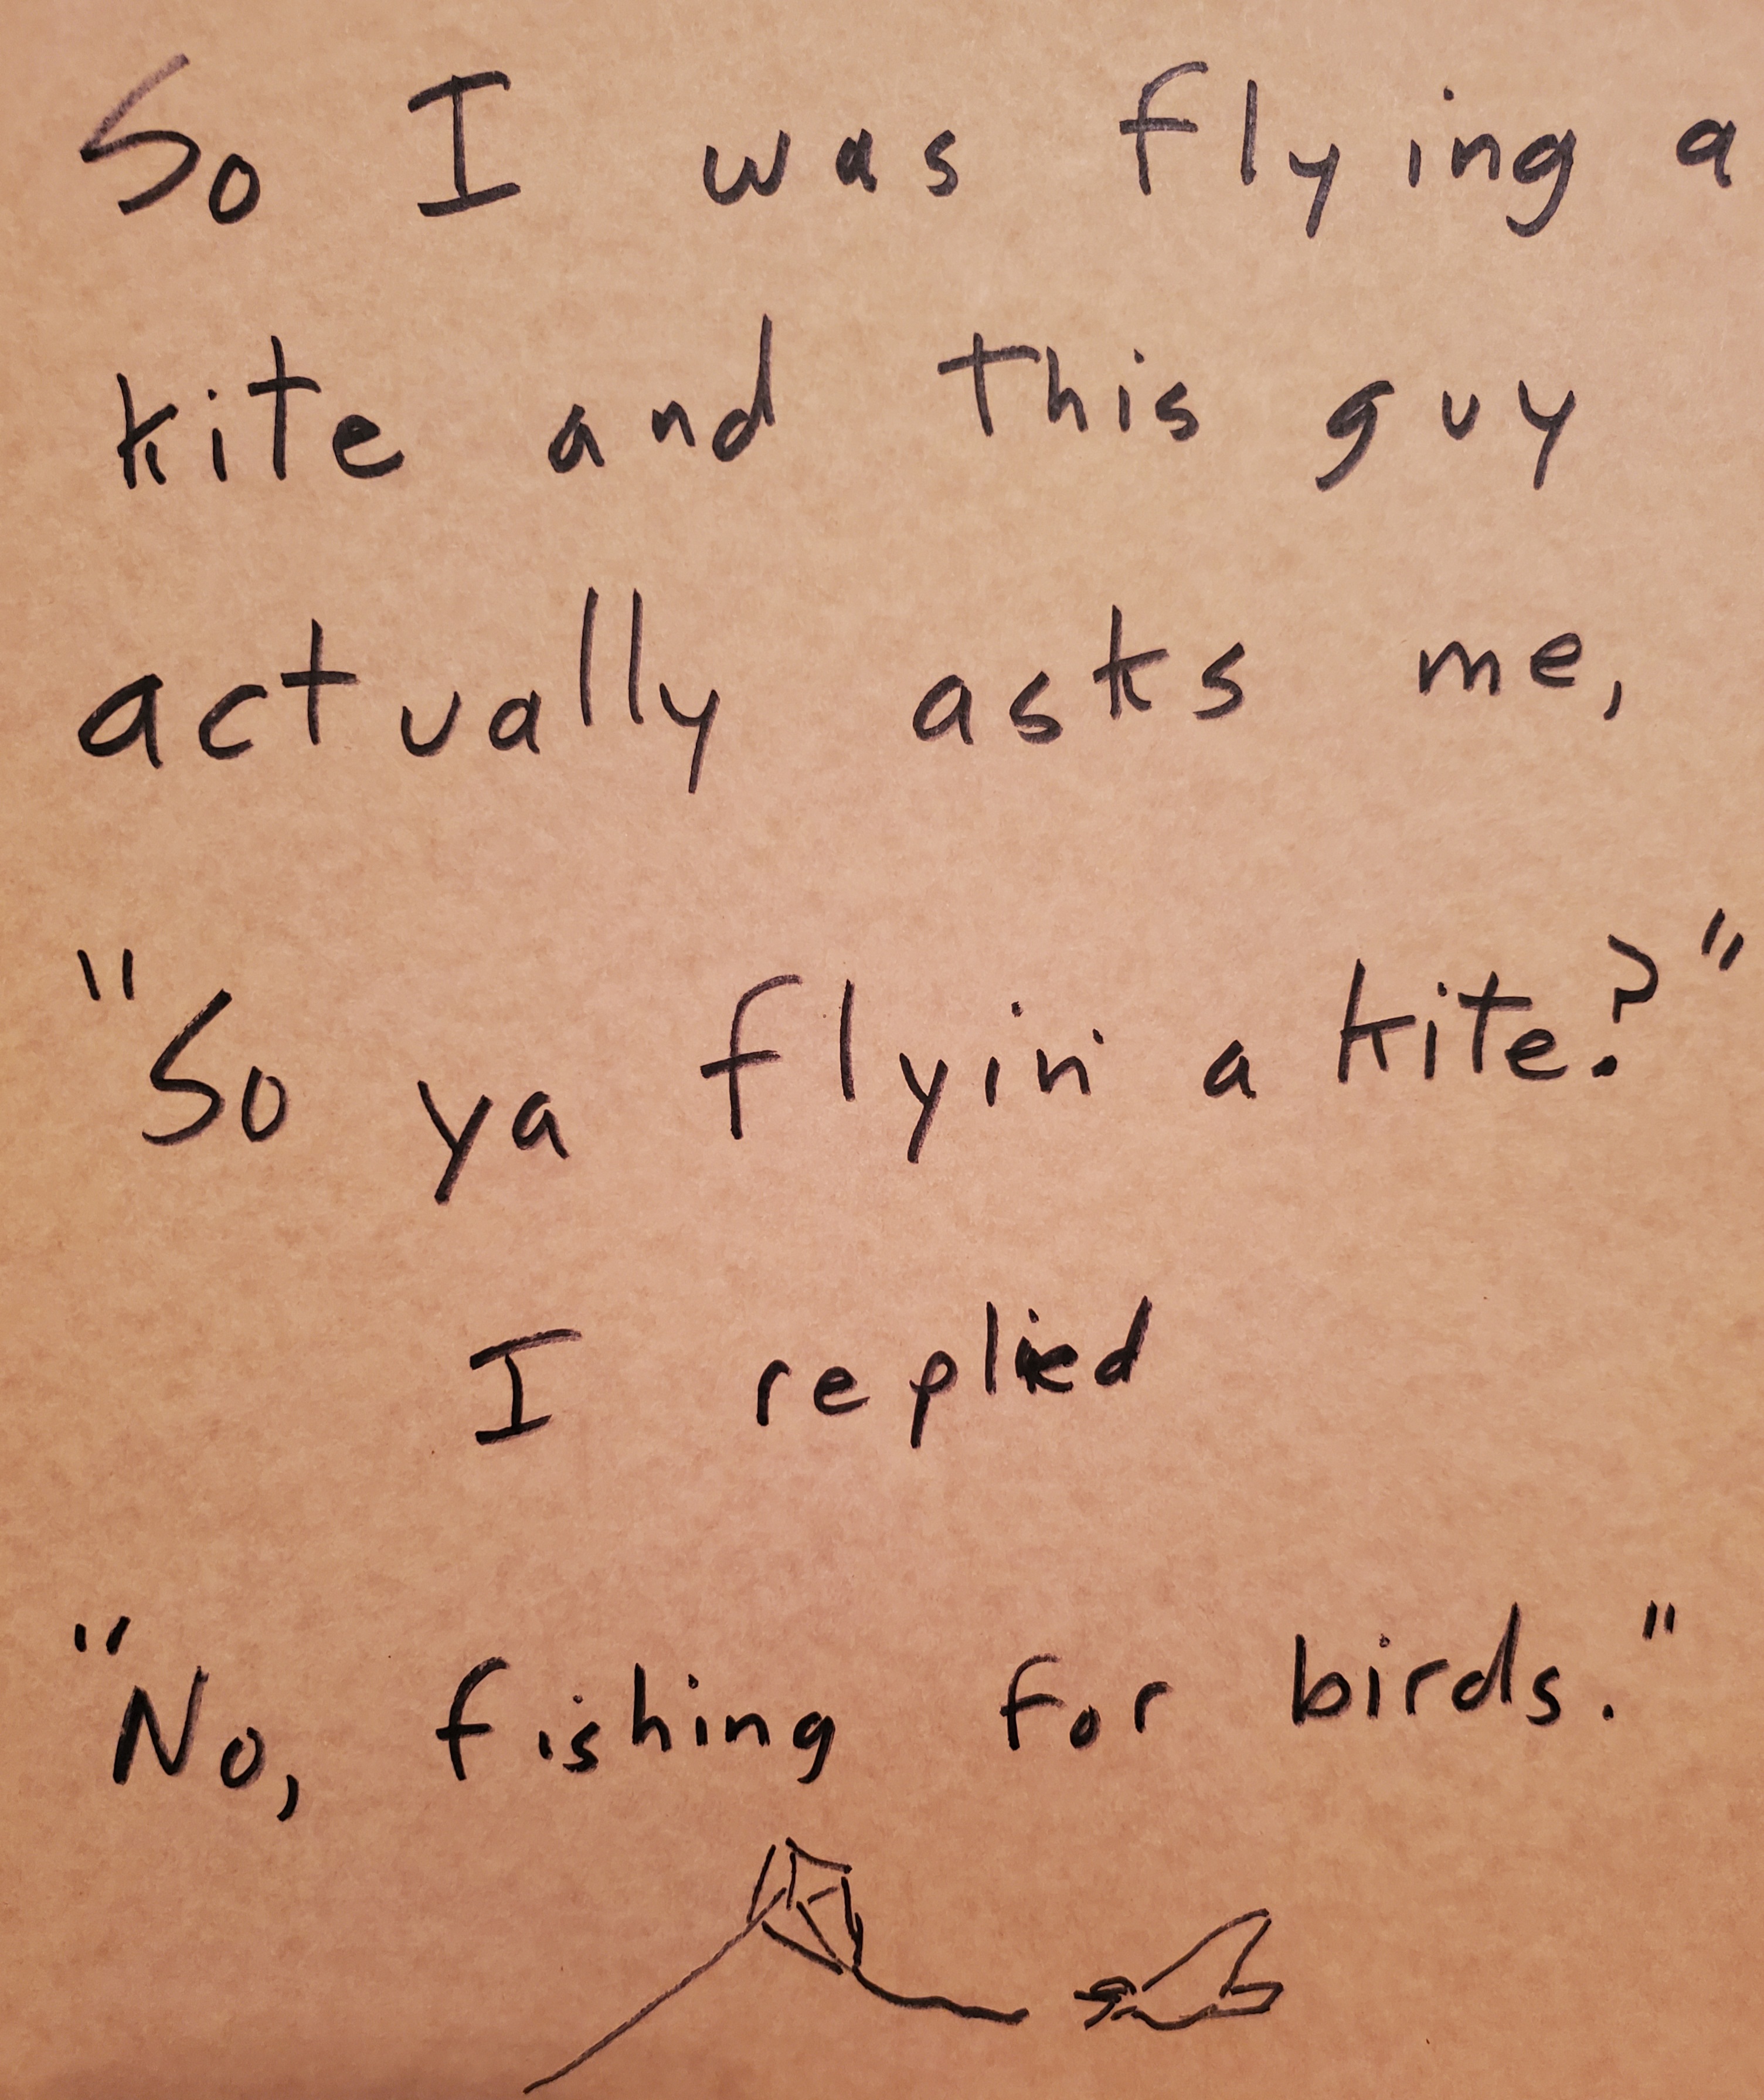 So I was flying a
kite and this guy
actually asks me,
"So ya flyin' a kite?"
I replied
"No, fishing for birds."